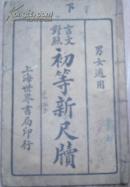 下
男女適用
言文對照
初等新尺牘
上海世界書局印行